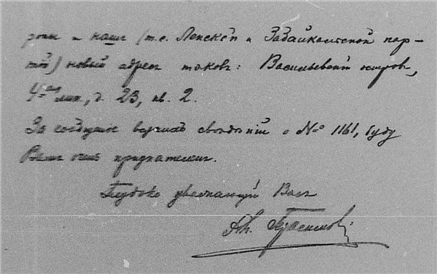 роны и нашъ (т.е. Ленской и Задайкалской пар-
тій) новый адресъ таковъ: Васильевскій островъ,
4ая лин., д. 23, кв. 2.
За сообщеніе верныхъ свѣдѣній о № 1161, буду
Вамъ очень признателенъ.
Глубоко уважающій Васъ
Ал. Герасимовъ